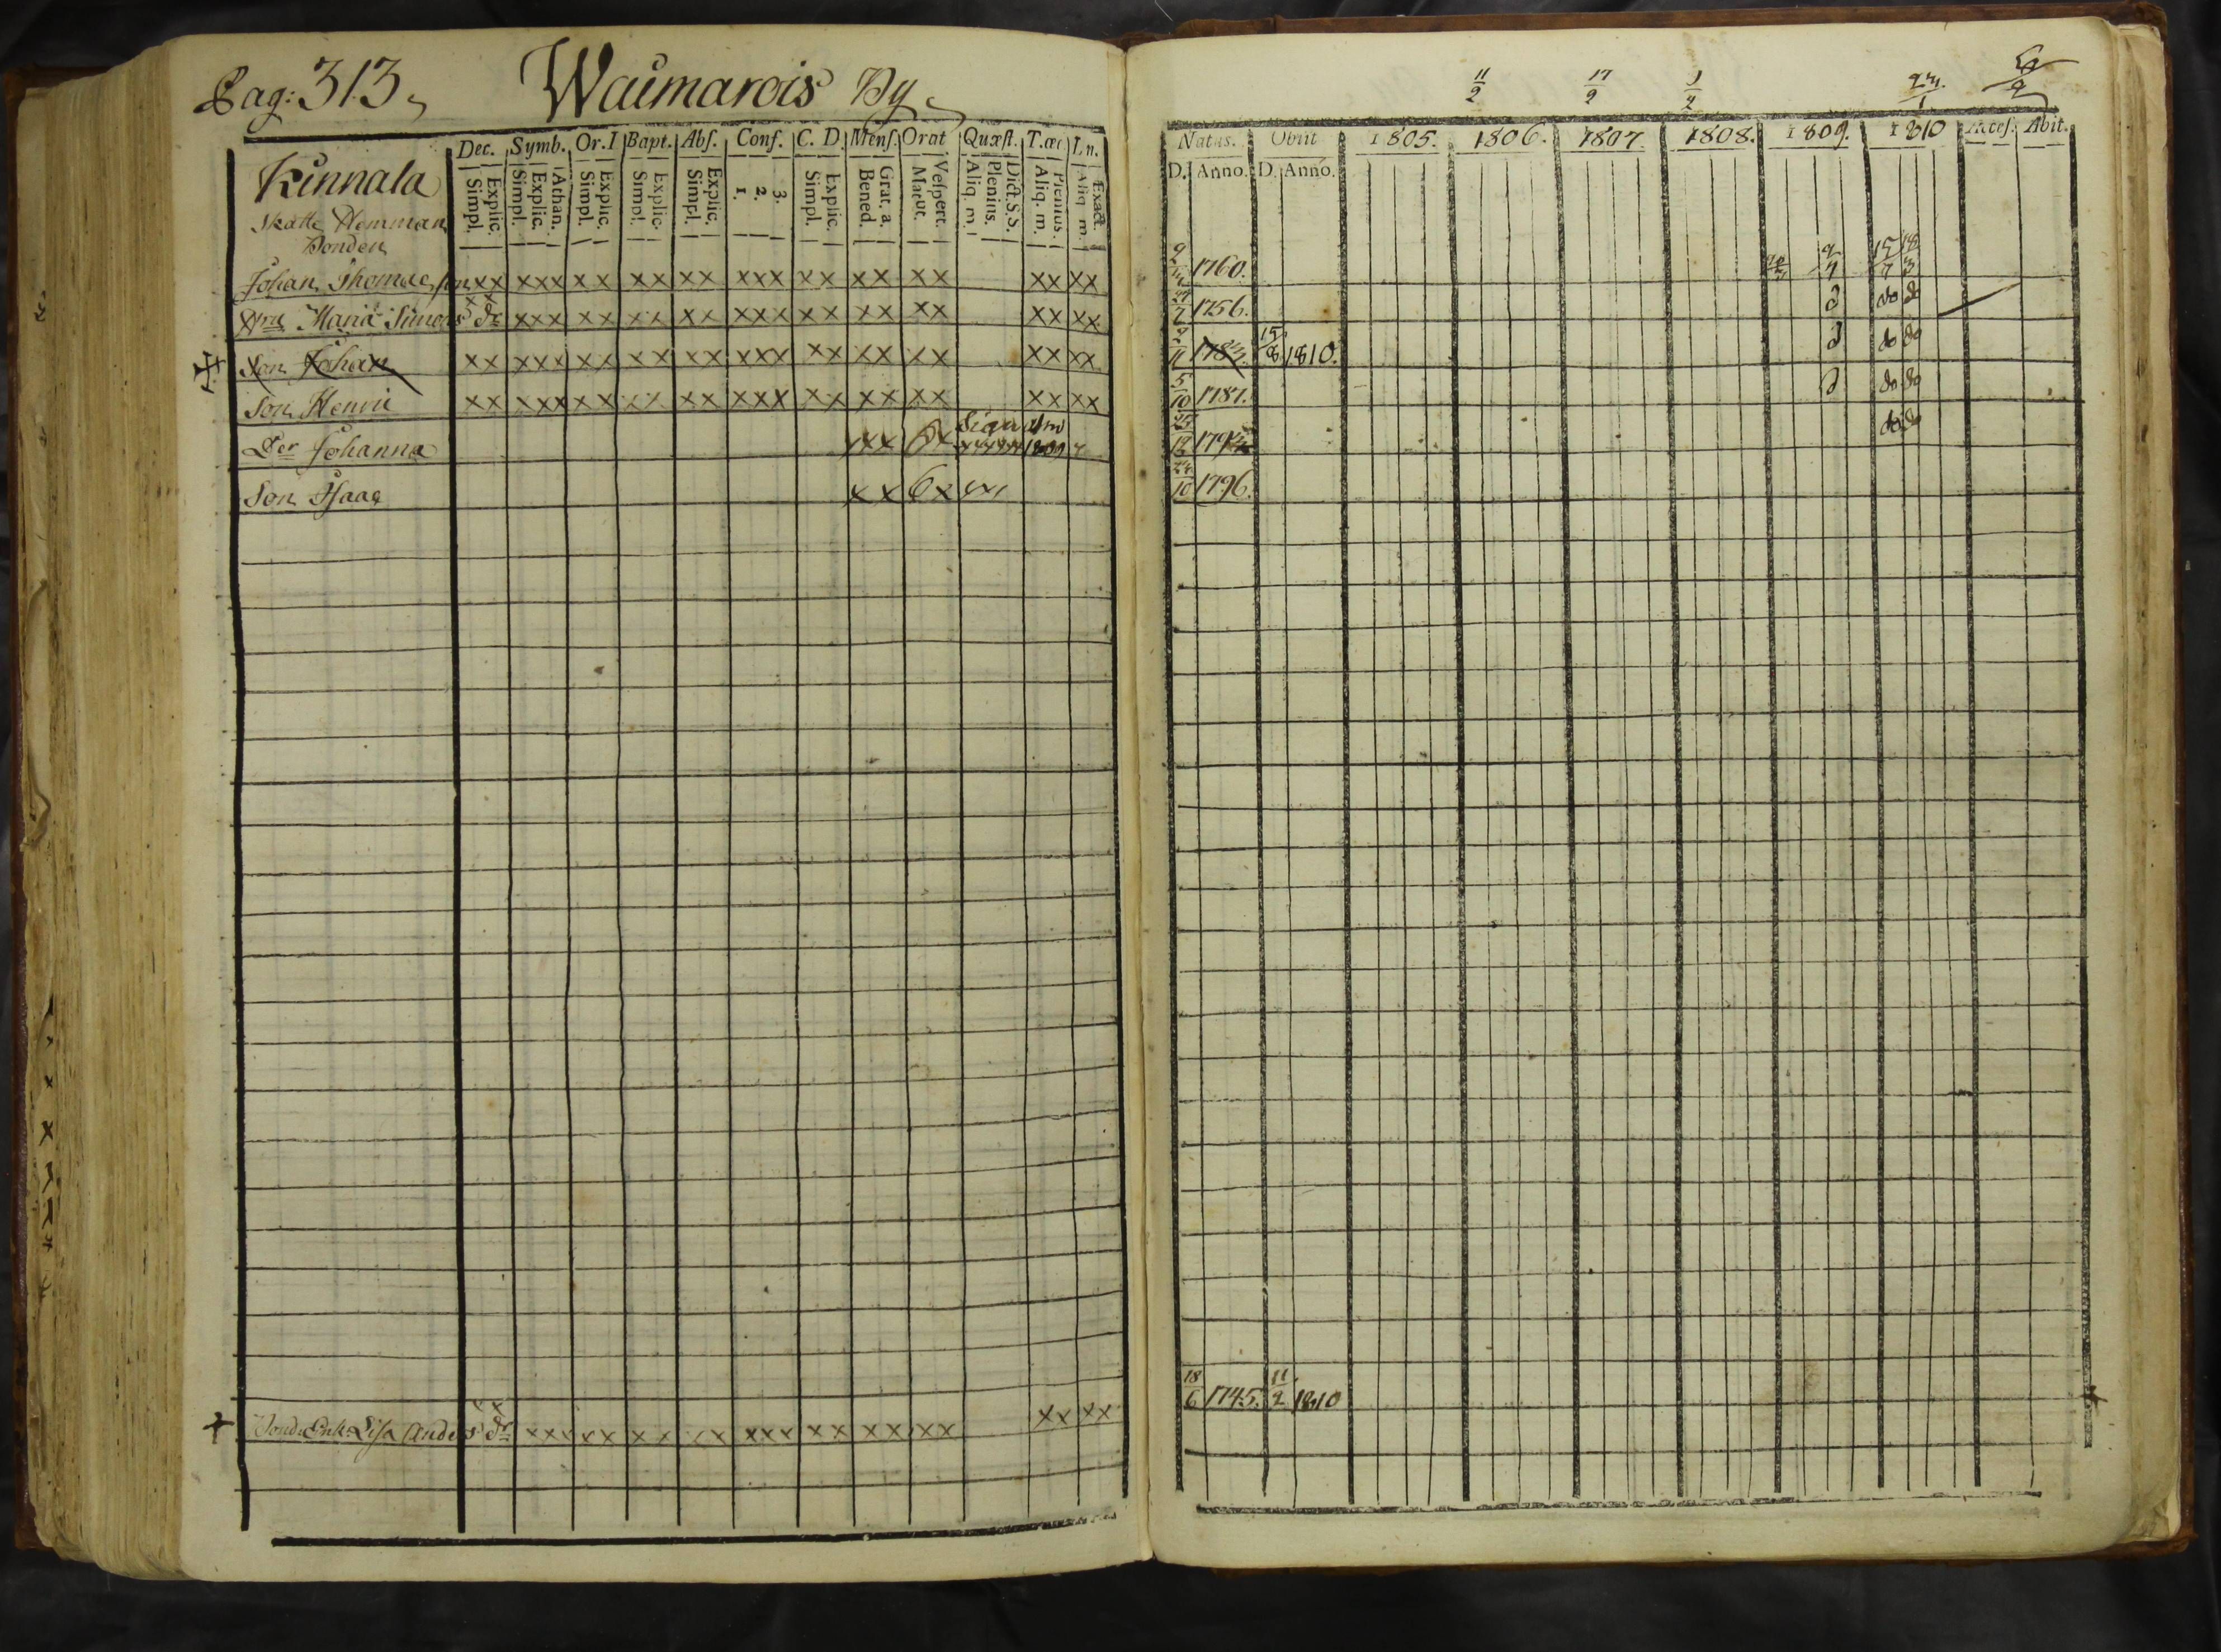 Pag: 313 Waimarois By
Dec. Symb. Or. I Bapt. Abs. Conf. C. D. Mens. Orat Quæst. T.œc Ln.
Explic. Simpl. Athan. Explic. Simpl. Explic. Simpl. Explic. Simpl. Explic. Simpl. 3. 2. 1. Explic. Simpl. Grat. a. Bened. Vespert. Matut. Dict. S.S. Plenius. Aliq. m. Plenius. Aliq. m. Exact. Aliq. m.
Kinnala
Skatte Hemman
Bonden
Johan Thomae son xx xxx xx xx xx xxx xx xx xx xx xx
Hru Maria Simons dr xx xxx xx xx xx xxx xx xx xx xx xx
Son Johan xx xxx xx xx xx xxx xx xx xx xx xx
Son Henric xx xxx xx xx xx xxx xx xx xx xx xx
Der Johanna xxx 1809
Son Isaac xx 6x
Bonde Enk. Lisa Anders dr xx xxx xx xx xx xxx xx xx xx xx xx
11/2 17/2
Natus. Obiit 1805. 1806. 1807. 1808. 1809. 1810 Acces. Abit.
D. Anno. D. Anno.
1760. 15/7 18/3
1756. d do do
1783. 15/8 1810. d do do
5/10 1787. d do do
do do
24/10 1796.
18/6 1745. 11/2 1810